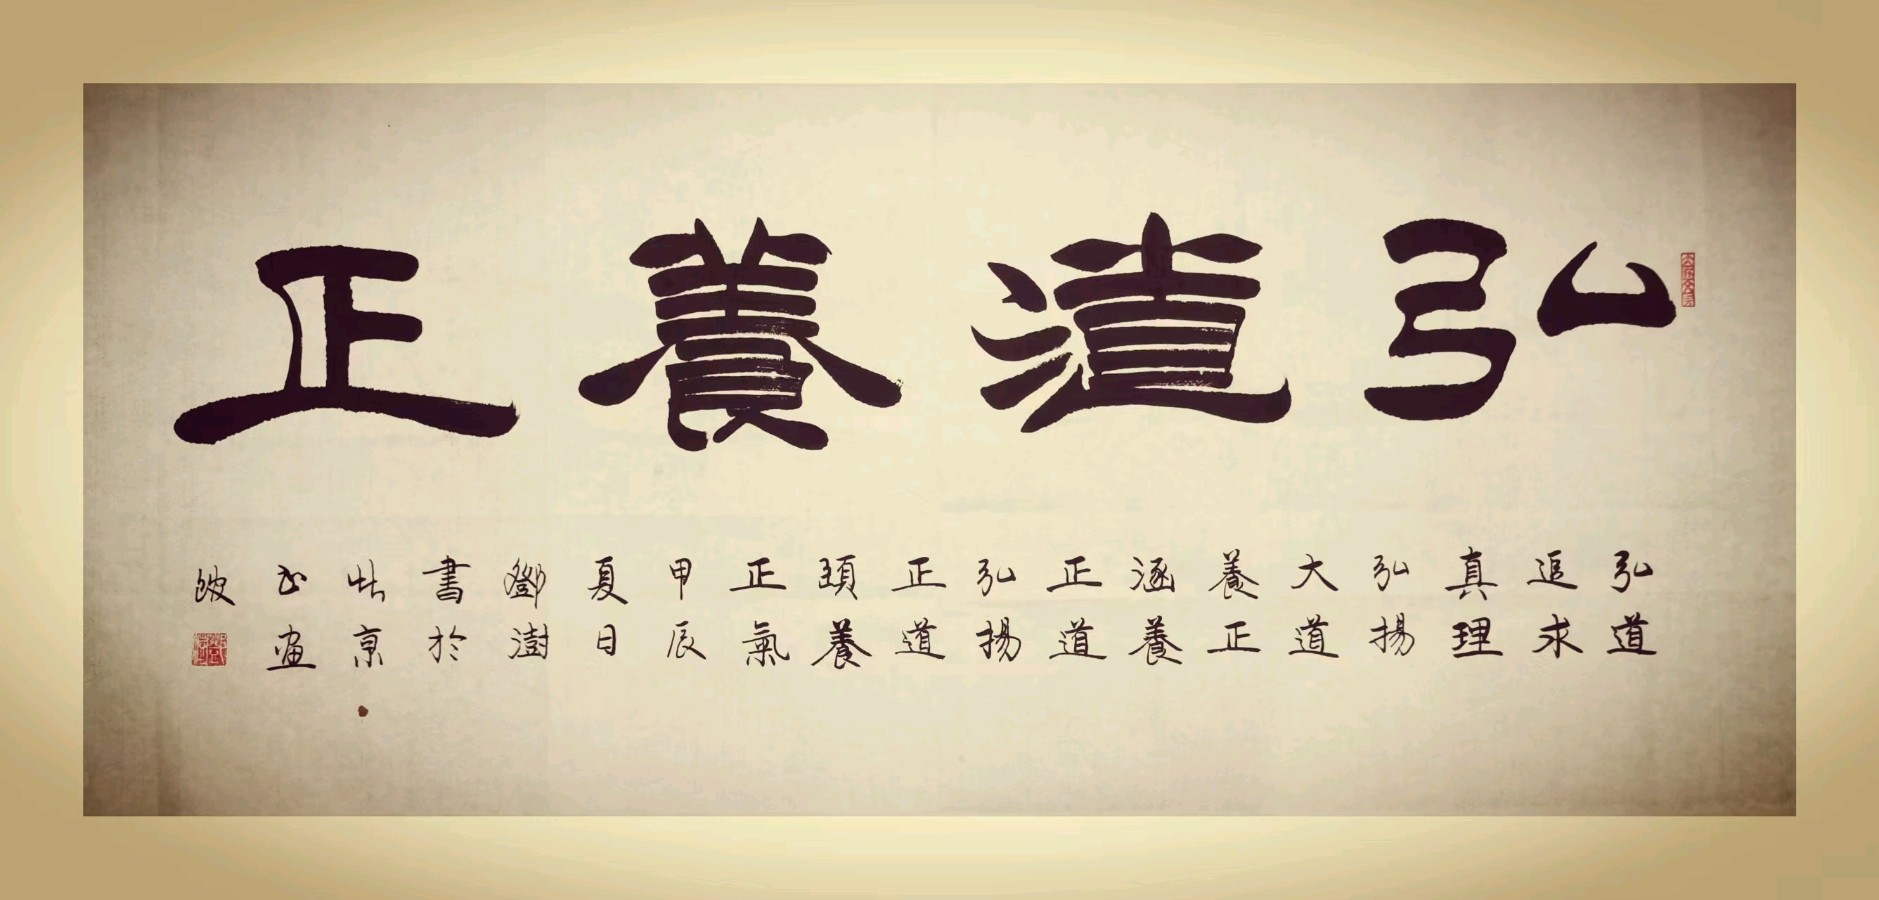 弘道養正
弘道
追求
真理
弘揚
大道
養正
涵養
正道
弘揚
正道
頤養
正氣
甲辰
夏日
鄧澍
書於
北京
书畫